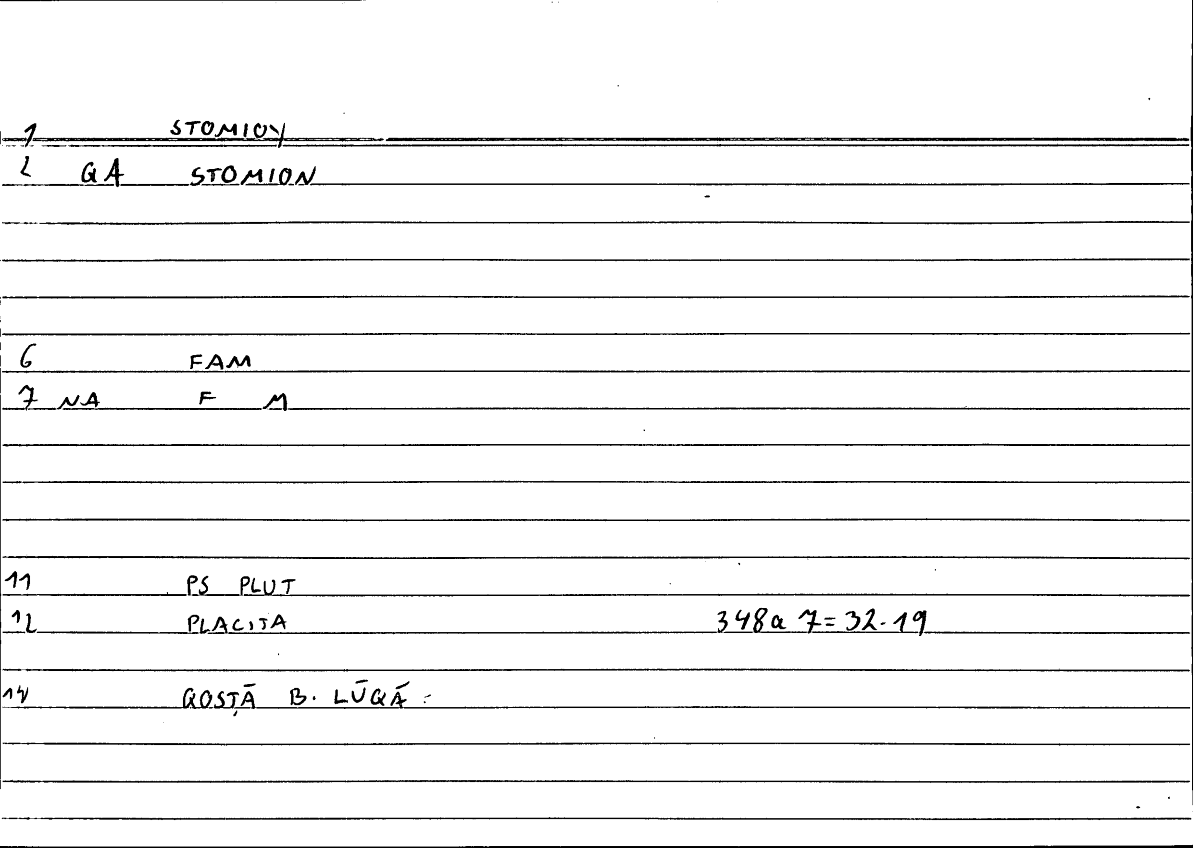 1 STOMION
2 QA STOMION
6 FAM
7 NA F M
11 PS PLUT
12 PLACITA 348a 7=32.19
14 QOSṬĀ B. LŪQĀ